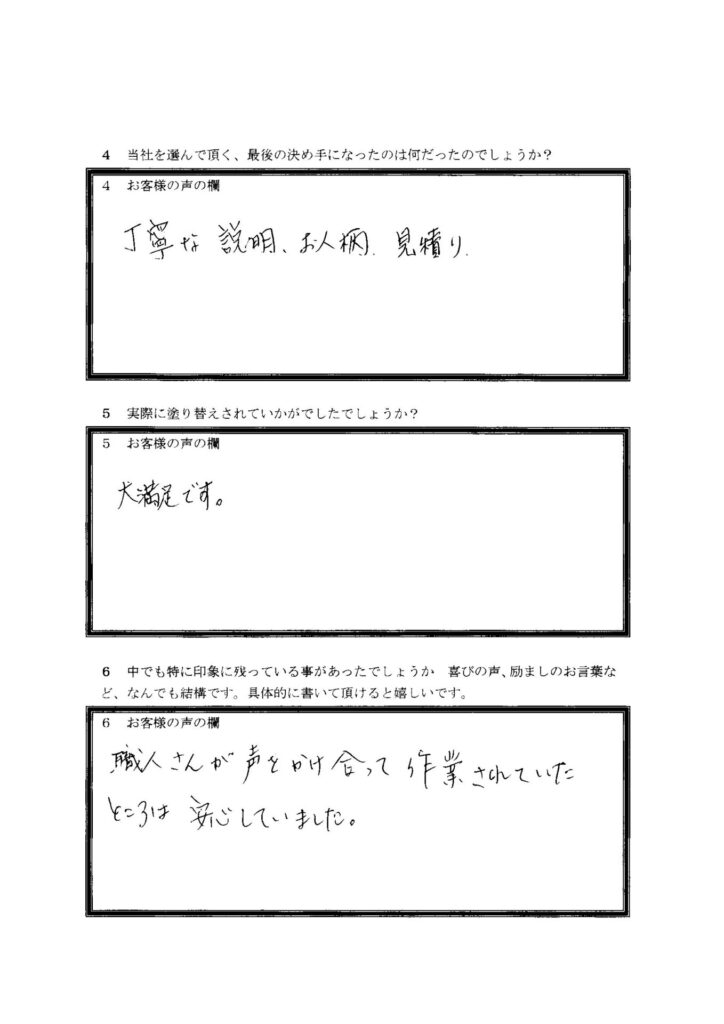 4 当社を選んで頂く、最後の決め手になったのは何だったのでしょうか？
4 お客様の声の欄
丁寧な説明、お人柄、見積り．
5 実際に塗り替えされていかがでしたでしょうか？
5 お客様の声の欄
大満足です。
6 中でも特に印象に残っている事があったでしょうか 喜びの声、励ましのお言葉な
ど、なんでも結構です。具体的に書いて頂けると嬉しいです。
6 お客様の声の欄
職人さんが声をかけ合って作業されていた
ところは安心していました。